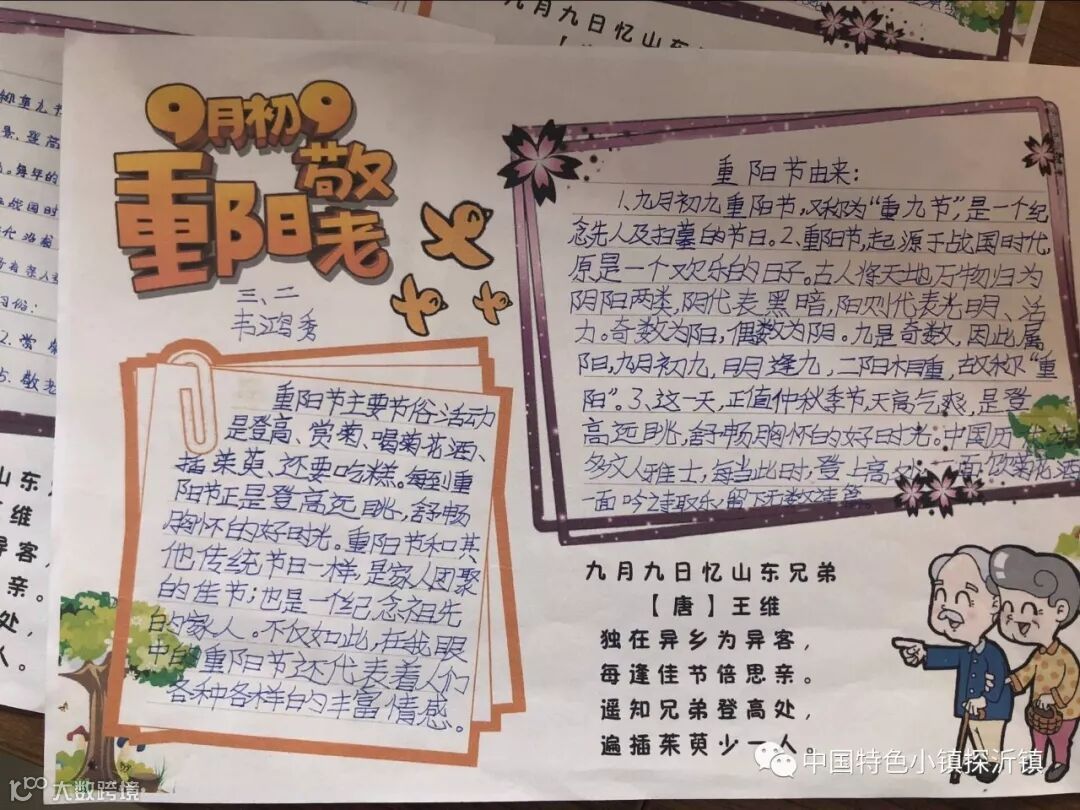 九月九日忆山东
9月初9
重阳
敬老
三、二
韦鸿秀
重阳节由来：
1、九月初九重阳节，又称为“重九节”，是一个纪
念先人及扫墓的节日。2、重阳节，起源于战国时代，
原是一个欢乐的日子。古人将天地万物归为
阴阳两类，阴代表黑暗，阳则代表光明、活
力。奇数为阳，偶数为阴。九是奇数，因此属
阳，九月初九，日月逢九，二阳相重，故称“重
阳”。3、这一天，正值仲秋季节，天高气爽，是登
高远眺，舒畅胸怀的好时光。中国历
多文人雅士，每当此时，登上高 一面饮菊花酒
一面吟诗取乐，留下无数
重阳节主要节俗活动
是登高、赏菊、喝菊花酒、
插茱萸、还要吃糕。每到重
阳节正是登高远眺，舒畅
胸怀的好时光。重阳节和其
他传统节日一样，是家人团聚
的佳节；也是一个纪念祖先
的家人。不仅如此，在我眼
中的重阳节还代表着人们
各种各样的丰富情感。
九月九日忆山东兄弟
【唐】王维
独在异乡为异客，
每逢佳节倍思亲。
遥知兄弟登高处，
遍插茱萸少一人。
每年的
战国时
2.赏菊
5.敬老
东
维
异客，
亲。
处，
人。
中国特色小镇探沂镇
大数跨境